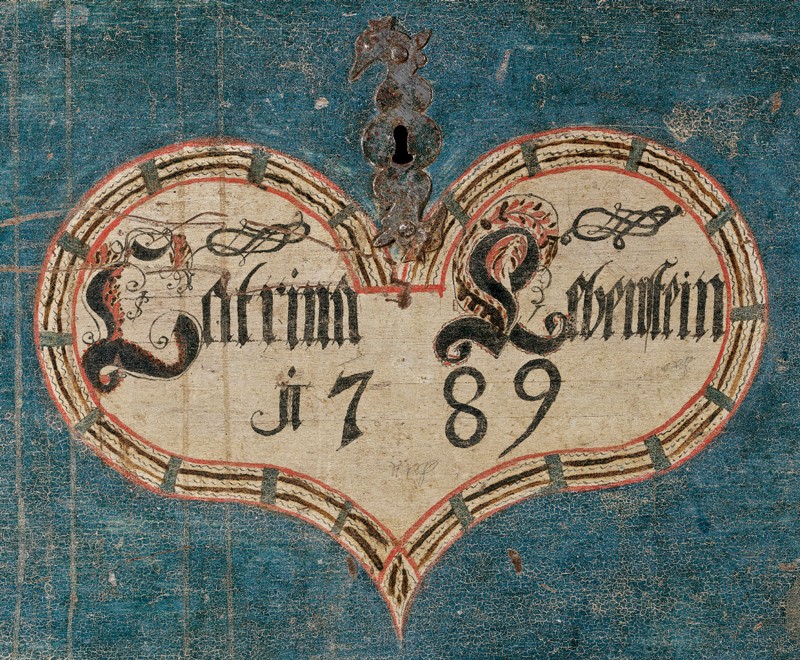 Catrina Lebenstein
1789